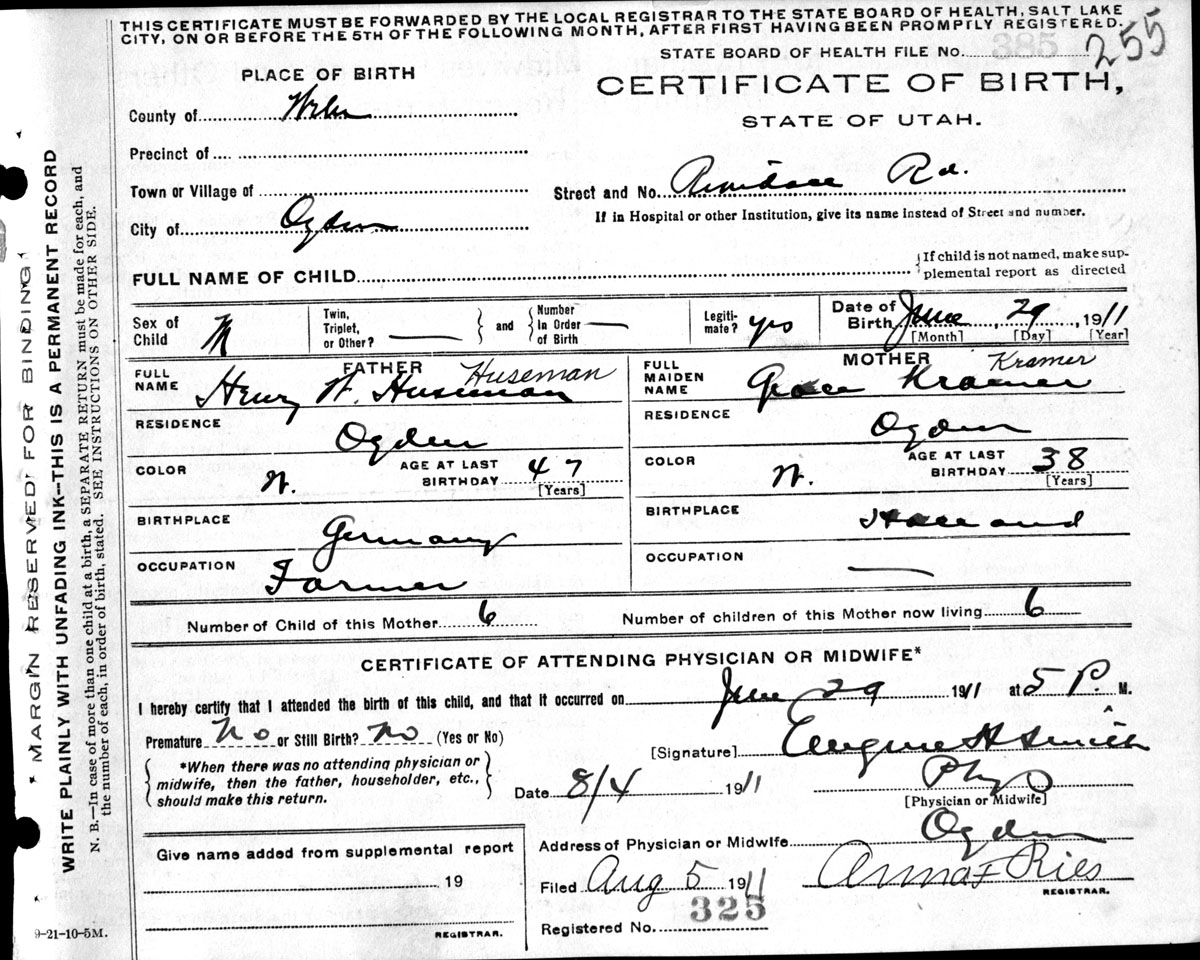 THIS CERTIFICATE MUST BE FORWARDED BY THE LOCAL REGISTRAR TO THE STATE BOARD OF HEALTH, SALT LAKE
CITY, ON OR BEFORE THE 5TH OF THE FOLLOWING MONTH, AFTER FIRST HAVING BEEN PROMPTLY REGISTERED.
STATE BOARD OF HEALTH FILE NO. 385 255
PLACE OF BIRTH
CERTIFICATE OF BIRTH,
STATE OF UTAH.
County of Weber
Precinct of
Town or Village of
Street and No. Rd.
City of Ogden
If in Hospital or other Institution, give its name instead of Street and number.
FULL NAME OF CHILD
If child is not named, make sup-
plemental report as directed
Sex of Child M
Twin, Triplet, or Other?
and
Number in Order of Birth
Legiti-mate? yes
Date of Birth June 29, 1911
[Month] [Day] [Year]
FATHER
FULL NAME Henry W. Huseman Huseman
RESIDENCE Ogden
COLOR W.
AGE AT LAST BIRTHDAY 47
[Years]
BIRTHPLACE Germany
OCCUPATION Farmer
MOTHER
FULL MAIDEN NAME Grace Kramer Kramer
RESIDENCE Ogden
COLOR W.
AGE AT LAST BIRTHDAY 38
[Years]
BIRTHPLACE Holland
OCCUPATION —
Number of Child of this Mother 6
Number of children of this Mother now living 6
CERTIFICATE OF ATTENDING PHYSICIAN OR MIDWIFE*
I hereby certify that I attended the birth of this child, and that it occurred on June 29 1911 at 5 P. M.
Premature No or Still Birth? No (Yes or No)
[Signature] Eugene H Smith
*When there was no attending physician or
midwife, then the father, householder, etc.,
should make this return.
Date 8/4 1911
Phys
[Physician or Midwife]
Address of Physician or Midwife Ogden
Give name added from supplemental report
19
REGISTRAR.
Filed Aug 5 1911
Anna F Ries
REGISTRAR.
325
Registered No.
9-21-10-5M.
* MARGIN RESERVED FOR BINDING
WRITE PLAINLY WITH UNFADING INK—THIS IS A PERMANENT RECORD
N. B.—In case of more than one child at a birth, a SEPARATE RETURN must be made for each, and
the number of each, in order of birth, stated. SEE INSTRUCTIONS ON OTHER SIDE.